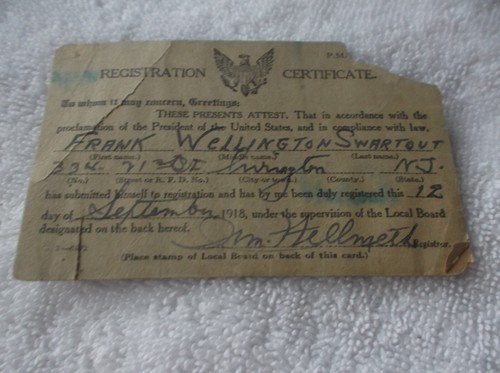 P.M.
REGISTRATION CERTIFICATE.
To whom it may concern, Greetings:
THESE PRESENTS ATTEST, That in accordance with the
proclamation of the President of the United States, and in compliance with law,
FRANK WELLINGTON SWARTOUT
(First name.) (Middle name.) (Last name.)
334 21st St Irvington N.J.
(No.) (Street or R. F. D. No.) (City or town.) (County.) (State.)
has submitted himself to registration and has by me been duly registered this 12
day of September 1918, under the supervision of the Local Board
designated on the back hereof.
Wm. Hellmeth
Registrar.
(Place stamp of Local Board on back of this card.)